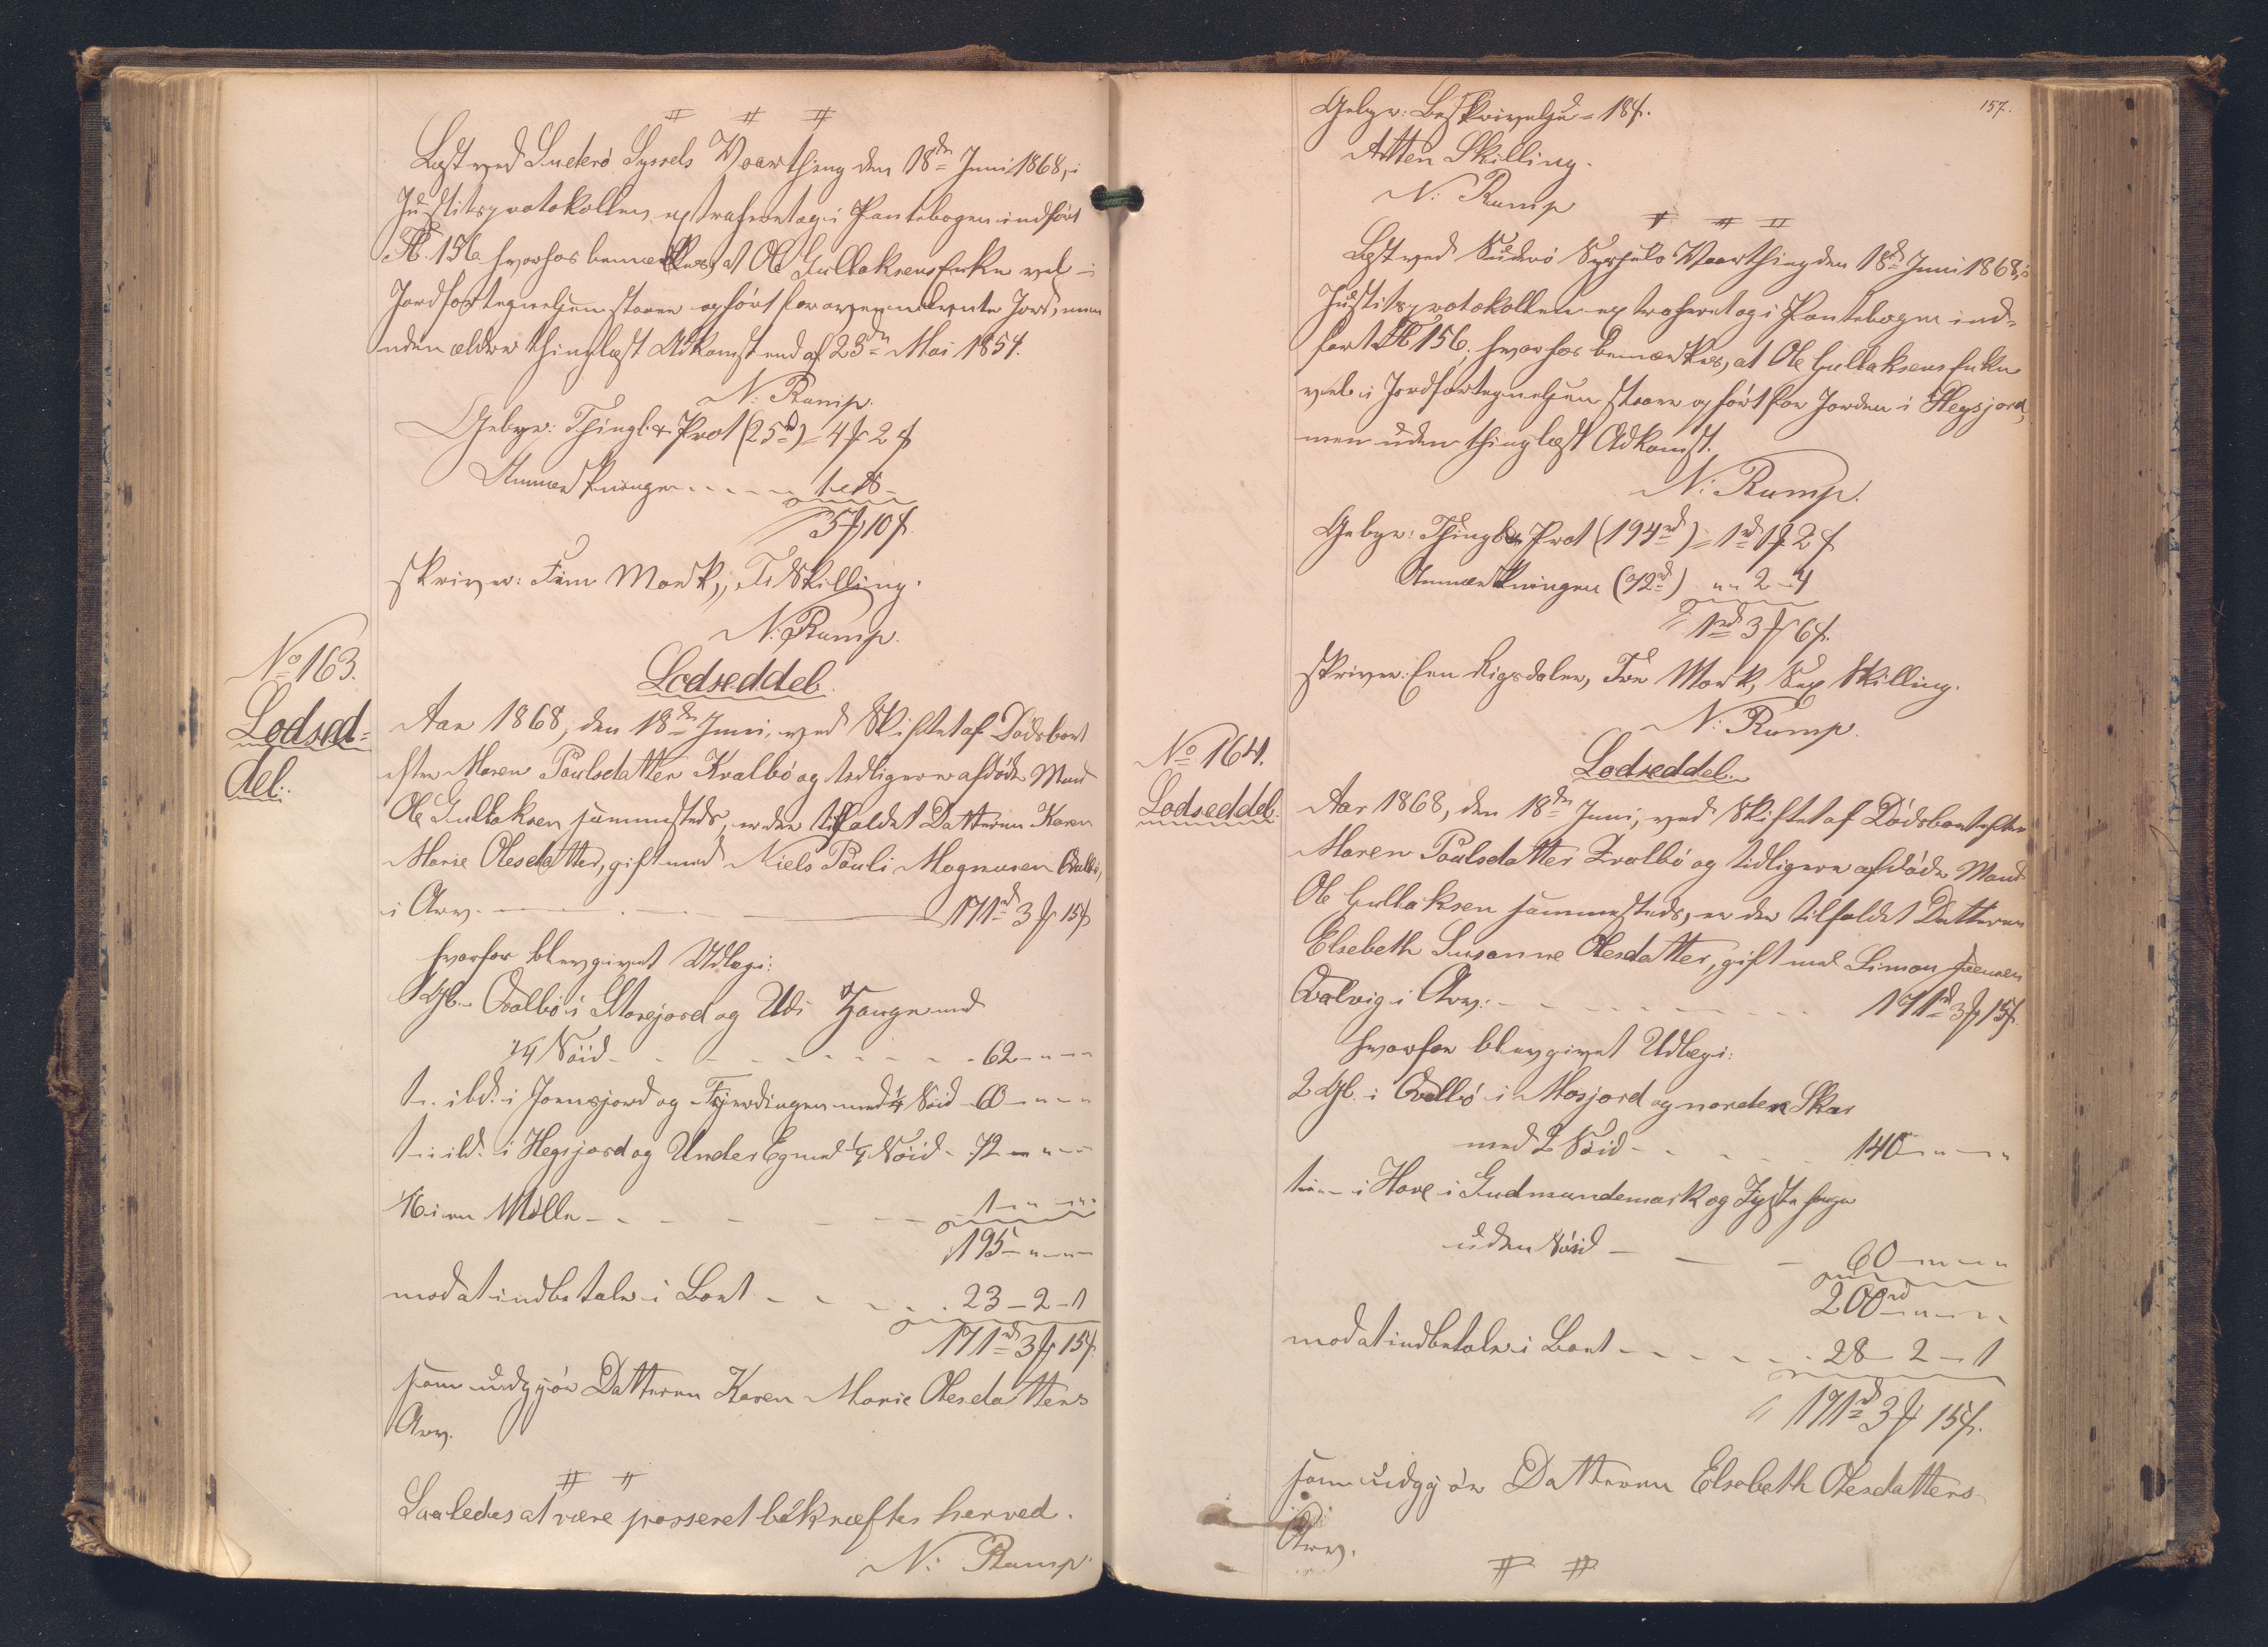 # # #
Læst ved Suderø Syssels Vaarthing den 18de Juni 1868, i
Justitsprotokollen extraheret og i Pantebogen indført
Fol. 156. hvorhos bemærkes, at Ole Gullaksens Enke vel i
Jordfortegnelsen staaer opført for ovennævnte Jord, men
uden ældre thinglæst Adkomst end af 23de Mai 1854.
N: Rump.
Gebyr: Thingl. & Prot (25rd) = 4 ẞ 2 ẞ
Anmærkningen - - - - - 1 " 8 -
5 ẞ 10 ẞ.
skriver: Fem Mark, Ti Skilling.
N: Rump.
No 163.
Lodsed=
del:
Lodseddel.
Aar 1868, den 18de Juni, ved Skiftet af Dødsboet
efter Maren Poulsdatter Kvalbø og tidligere afdøde Mand
Ole Gullaksen sammesteds, er der tilfaldet Datteren Karen
Marie Olesdatter, gift med Niels Pauli Magnusen Qvalbø,
i Arv. - - - 171rd 3 ẞ 15 ẞ
hvorfor blev givet Udlæg i:
1 Gl. Qvalbø i Storejord og Udi Hauge med
1/4 Nöid - - - - - - 62 - " - "
1 - ibd. i Joensjord og Fjerdingen med 1/4 Nöid - 60 - " - "
1 - ibd. i Hegsjord og Under Eg med 1/4 Nöid - 72 - " - "
1/6 i en Mølle - - - - - 1 - " - "
195 - " - "
mod at indbetale i Boet - - - - - 23 - 2 - 1
171rd 3 ẞ 15 ẞ.
som udgjør Datteren Karen Marie Olesdatters
Arv.
# #
Saaledes at være passeret bekræftes herved.
N: Rump.
157.
Gebyr: Beskrivelse = 18 ẞ.
Atten Skilling.
N: Rump
# # #
Læst ved Suderø Syssels Vaarthing den 18de Juni 1868, i
Justitsprotokollen extraheret og i Pantebogen ind=
ført Fol 156. hvorhos bemærkes, at Ole Gullaksens Enke
vel i Jordfortegnelsen staaer opført for Jorden i Hegsjord,
men uden thinglæst Adkomst.
N: Rump.
Gebyr: Thingl & Prot (194rd) = 1rd 1 ẞ 2 ẞ
Anmærkningen (72rd) " " 2 - 4
1rd 3 ẞ 6 ẞ.
skriver: Een Rigsdaler, Tre Mark, Sex Skilling.
N: Rump.
No 164.
Lodseddel.
Lodseddel.
Aar 1868, den 18de Juni, ved Skiftet af Dødsboet efter
Maren Poulsdatter Qvalbø og tidligere afdøde Mand
Ole Gullaksen sammesteds, er der tilfaldet Datteren
Elsebeth Susanne Olesdatter, gift med Simon Joensen
Qvalvig i Arv: - - - - - - 171rd 3 ẞ 15 ẞ.
hvorfor blev givet Udlæg i:
2 Gl. i Qvalbø i Mosjord og norden Skar
med 2 Nöid - - - - - 140 - " - "
1 - " - i Hove i Gudmundemark og Fyste hauge
uden Nöid - - - 60 - " - "
200rd - " - "
mod at indbetale i Boet - - - - - 28 - 2 - 1
171rd 3 ẞ 15 ẞ.
som udgjør Datteren Elsebeth Olesdatters
Arv.
# #